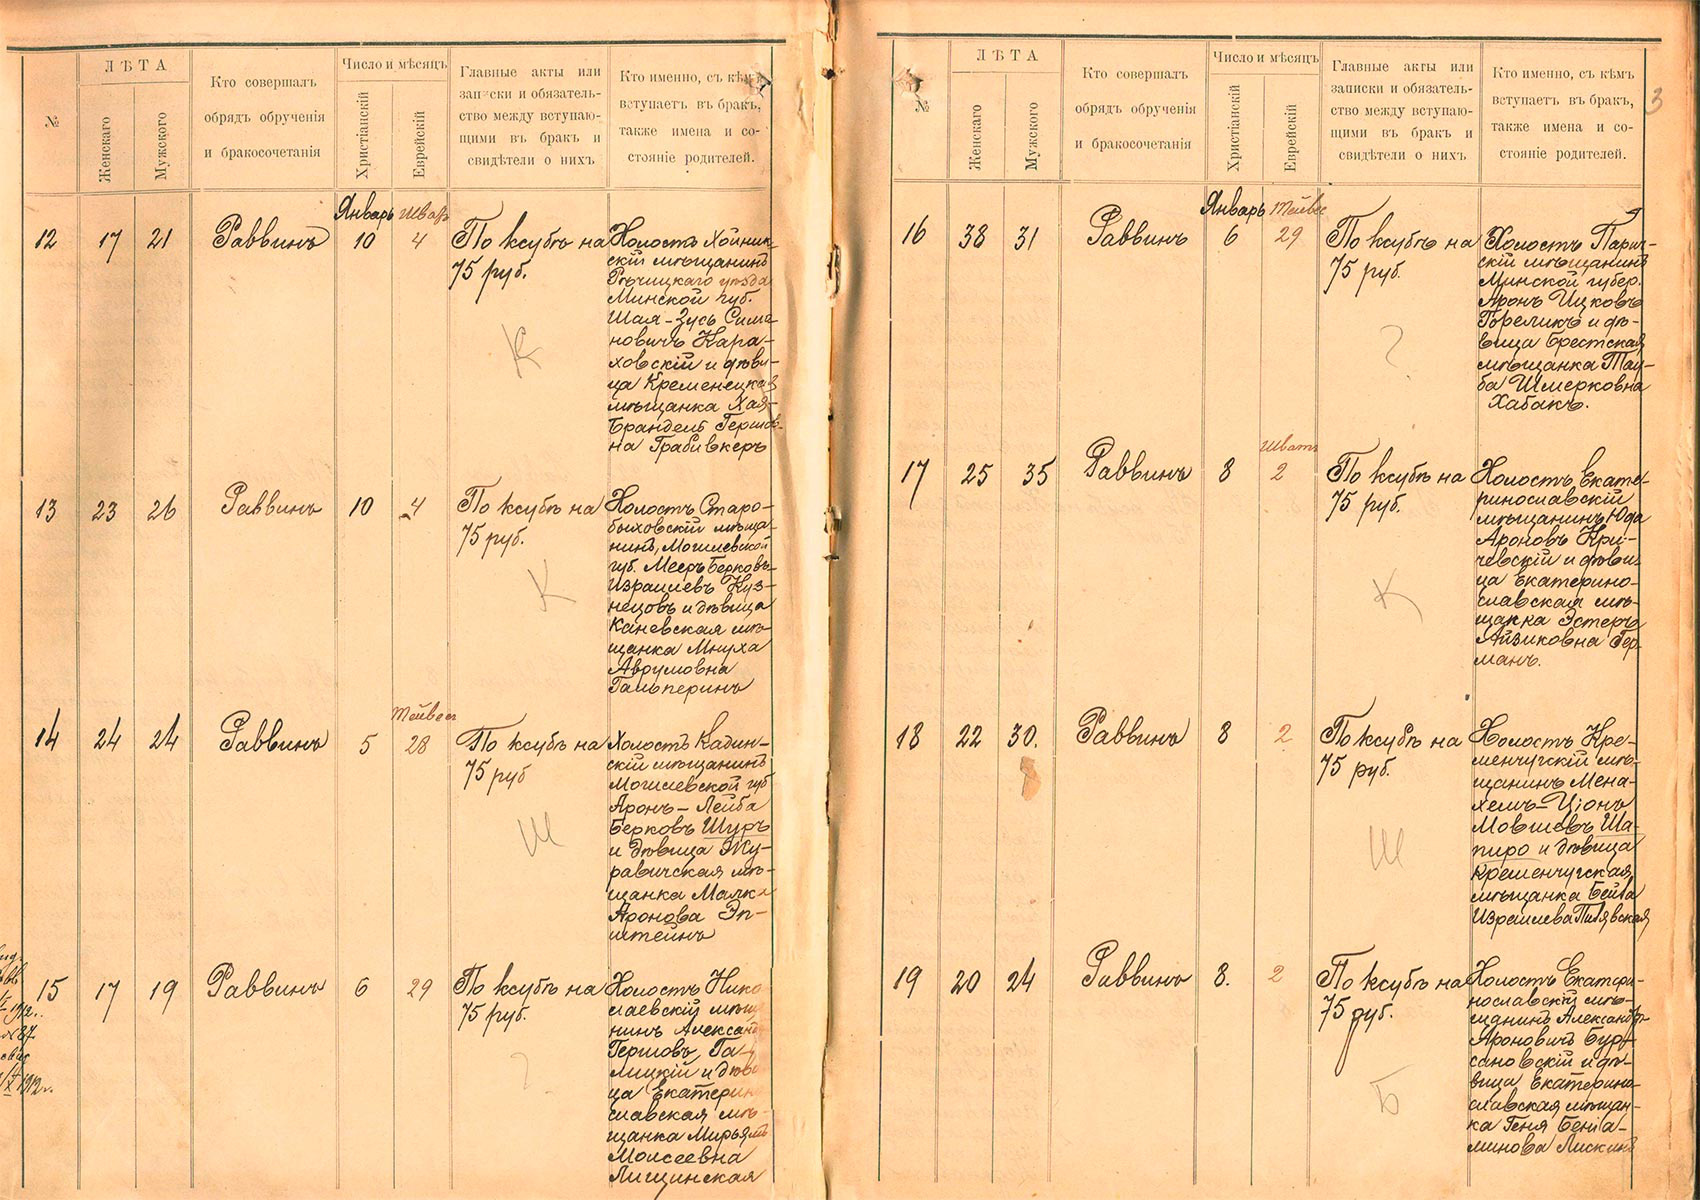 №
ЛѢТА
Женскаго
Мужского
Кто совершалъ
обрядъ обрученія
и бракосочетанія
Число и мѣсяцъ
Христіанскій
Еврейскій
Главные акты или
записки и обязатель-
ство между вступаю-
щими въ бракъ и
свидѣтели о нихъ
Кто именно, съ кѣмъ
вступаетъ въ бракъ,
также имена и со-
стояніе родителей.
Январь Шватъ
12 17 21 Раввинъ 10 4
По ксубѣ на
75 руб.
К
Холостъ Хойник-
скій мѣщанинъ
Рѣчицкаго уѣзда
Минской губ.
Шая-Зусь Сима-
новичъ Кара-
ховскій и дѣви-
ца Кременецкая
мѣщанка Хая-
Брандель Гершов-
на Грабивкеръ
13 23 26 Раввинъ 10 4
По ксубѣ на
75 руб.
К
Холостъ Старо-
быховскій мѣща-
нинъ, Могилевской
губ. Мееръ Берковъ-
Израилевъ Куз-
нецовъ и дѣвица
Каневская мѣ-
щанка Мнуха
Аврумовна
Гальперинъ
Тейвес
14 24 24 Раввинъ 5 28
По ксубѣ на
75 руб
Ш
Холостъ Кадин-
скій мѣщанинъ
Могилевской губ
Аронъ-Лейба
Берковъ Шуръ
и дѣвица Жу-
равичская мѣ-
щанка Малка
Аронова Эп-
штейнъ
1912г.
1912г.
15 17 19 Раввинъ 6 29
По ксубѣ на
75 руб.
?
Холостъ Нико
лаевскій мѣща
нинъ Александ
Гершовъ Га-
лицкій и дѣви
ца Екатерин
славская мѣ-
щанка Мирьямъ
Моисеевна
Лищинская
3
№
ЛѢТА
Женскаго
Мужского
Кто совершалъ
обрядъ обрученія
и бракосочетанія
Число и мѣсяцъ
Христіанскій
Еврейскій
Главные акты или
записки и обязатель-
ство между вступаю-
щими въ бракъ и
свидѣтели о нихъ
Кто именно, съ кѣмъ
вступаетъ въ бракъ,
также имена и со-
стояніе родителей.
Январь Тейвес
16 38 31 Раввинъ 6 29
По ксубѣ на
75 руб.
?
Холостъ Парич-
скій мѣщанинъ
Минской губер.
Аронъ Ицковъ
Гореликъ и дѣ-
вица Брестская
мѣщанка Тау-
ба Шмерковна
Хабакъ.
Шватъ
17 25 35 Раввинъ 8 2
По ксубѣ на
75 руб.
К
Холостъ Екате-
ринославскій
мѣщанинъ Юда
Ароновъ Кри-
чевскій и дѣви-
ца Екатерино-
славская мѣ-
щанка Эстеръ
Айзиковна Гер-
манъ.
18 22 30. Раввинъ 8 2
По ксубѣ на
75 руб.
Ш
Холостъ Кре-
менчугскій мѣ-
щанинъ Мена-
хемъ-Ціонъ
Мовшевъ Ша-
пиро и дѣвица
Кременчугская
мѣщанка Бейла
Израилева Пилявская
19 20 24 Раввинъ 8. 2
По ксубѣ на
75 руб.
Б
Холостъ Екатери-
нославскій мѣ-
щанинъ Александръ
Ароновичъ Бур-
сановскій и дѣ-
вица Екатерино-
славская мѣщан-
ка Геня Беніа-
минова Лискинъ